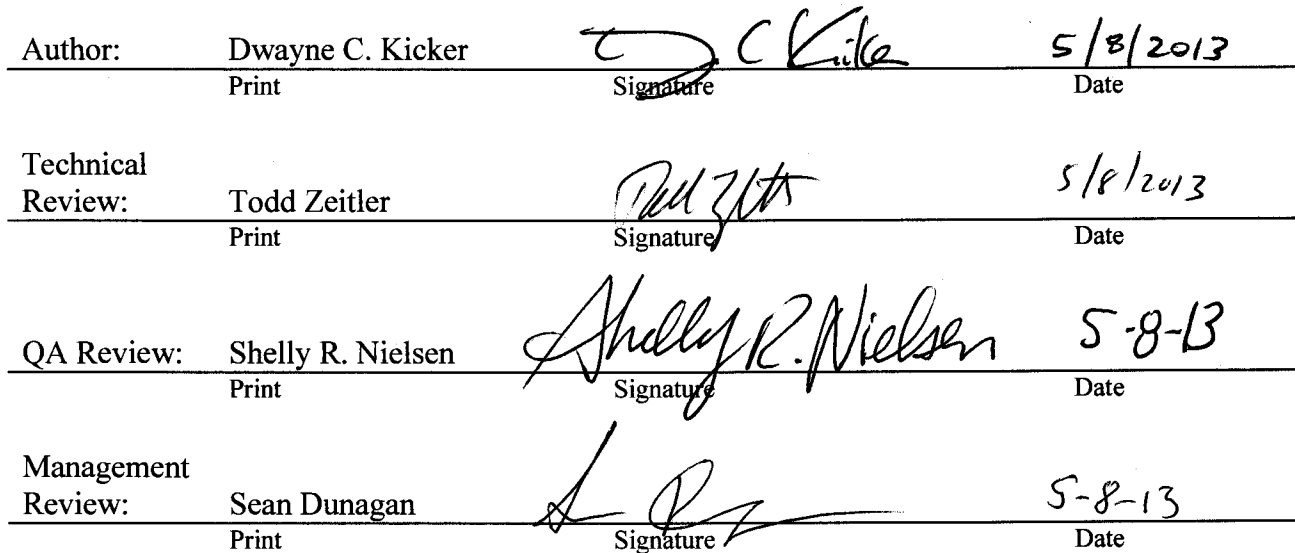 Author: Dwayne C. Kicker D. C Kicker 5/8/2013
Print Signature Date
Technical
Review: Todd Zeitler Todd Zeitler 5/8/2013
Print Signature Date
QA Review: Shelly R. Nielsen Shelly R. Nielsen 5-8-13
Print Signature Date
Management
Review: Sean Dunagan 5-8-13
Print Signature Date